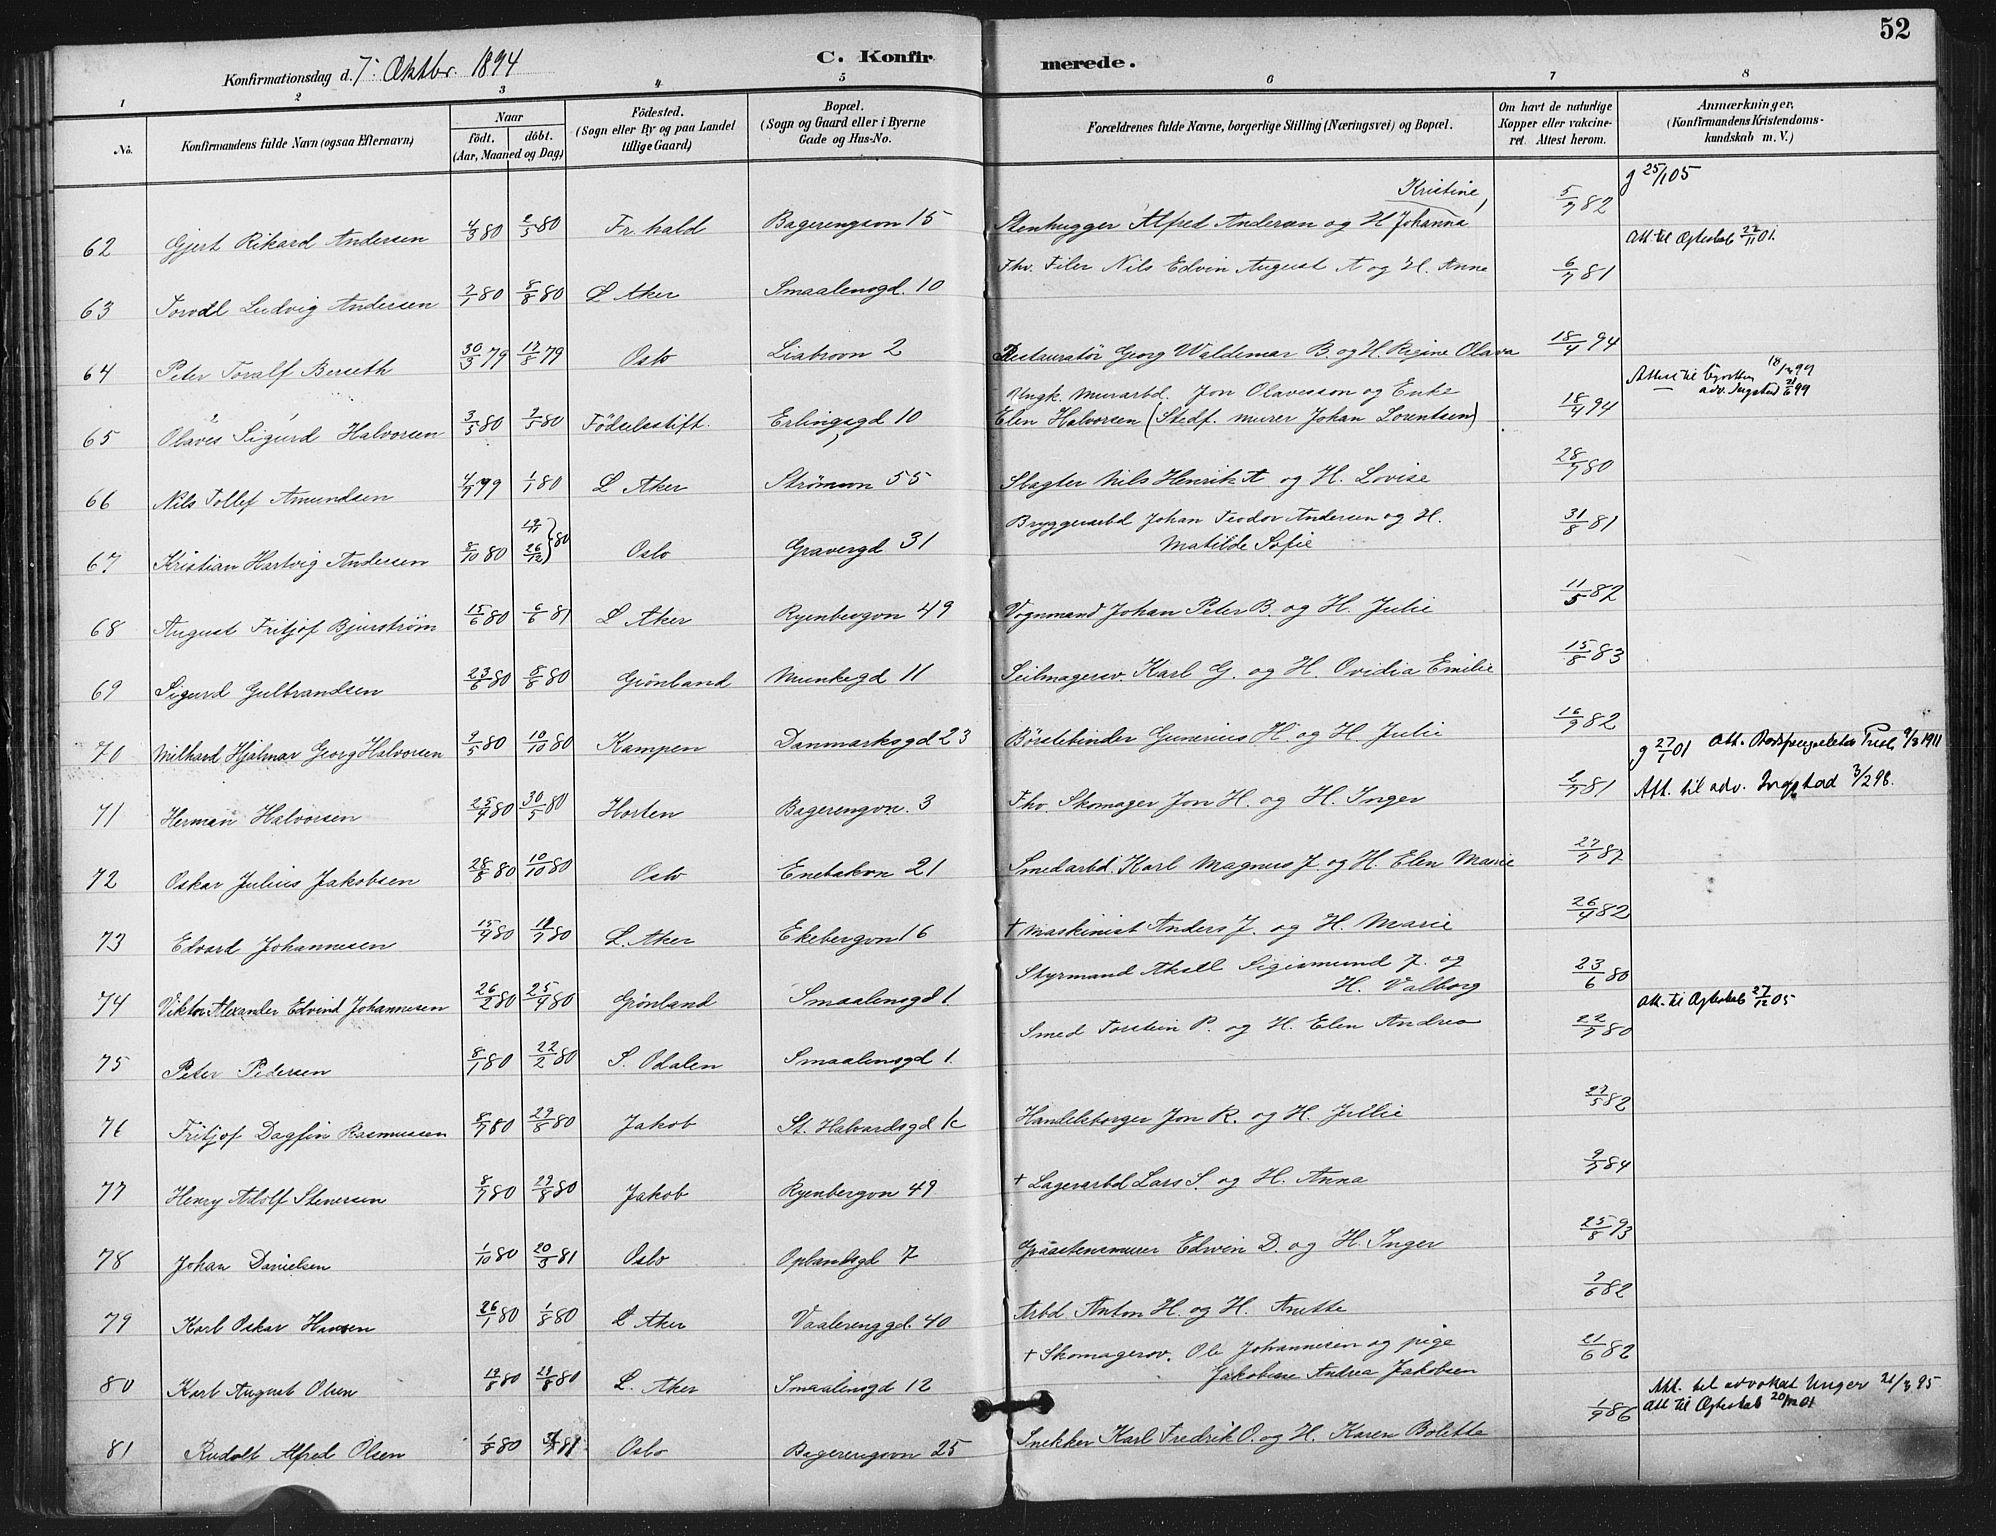 52
Konfirmationsdag d. 7. Oktbr. 1894
C. Konfirmerede.
1 2 3 4 5 6 7 8
No.
Konfirmandens fulde Navn (ogsaa Efternavn)
Naar
födt. döbt.
(Aar, Maaned og Dag)
Födested.
(Sogn eller By og paa Landet
tillige Gaard)
Bopæl.
(Sogn og Gaard eller i Byerne
Gade og Hus-No.
Forældrenes fulde Navne, borgerlige Stilling (Næringsvei) og Bopæl.
Om havt de naturlige
Kopper eller vakcine-
ret. Attest herom.
Anmærkninger,
(Konfirmandens Kristendoms-
kundskab m. V.)
g 25/1 05
Kristine,
62 Gjert Rikard Andersen 4/3 80 2/5 80 Fr.hald Bagerengvon 15 Stenhugger Alfred Andersen og H Johanna 5/7 82
Att. til Egteskab 22/11 01.
63 Torvdl Ludvig Andersen 2/1 80 8/8 80 L Aker Smaalensgd. 10 Fhv. Filer Nils Edvin August A og H. Anne 6/7 81
64 Peter Toralf Berseth 30/3 79 17/8 79 Oslo Liabrovn 2 Restauratör Georg Waldemar B. og H. Regine Olava 18/4 94
Attest til
adv. Ingstad 21/6 99
65 Olaves Sigurd Halvorsen 3/5 80 7/5 80 Födselsstift. Erlingsgd 10 Ungk. Murarbd. Jon Olavesson og Enke
Elen Halvorsen (Stedf. murer Johan Lorentsen) 18/4 94
66 Nils Tollef Amundsen 4/9 79 1/1 80 L Aker Strömsvn 55 Slagter Nils Henrik A og H. Lovise 28/7 80
67 Kristian Hartvig Andersen 8/10 80 19/11 26/12 } 80 Oslo Gravergd 31 Bryggeriarbd Johan Teodor Andersen og H.
Matilde Sofie 31/8 81
68 August Fritjof Bjurström 15/6 80 6/6 81 L Aker Ryenbergvn 49 Vognmand Johan Peter B. og H. Julie 11/5 82
69 Sigurd Gulbrandsen 23/6 80 8/8 80 Grönland Munkegd 11 Seilmagersv. Karl G. og H. Ovidia Emilie 15/8 83
70 Milhard Hjalmar Georg Halvorsen 9/5 80 10/10 80 Kampen Danmarksgd 23 Börstebinder Gunerius H. og H. Julie 16/9 82
g 27/1 01 Att. 9/3 1911
71 Herman Halvorsen 25/4 80 30/5 80 Horten Bagerengvn. 3 Fhv. Skomager Jon H. og H. Inger 2/7 81
Att. til adv. Ingstad 3/2 98.
72 Oskar Julius Jakobsen 28/8 80 10/10 80 Oslo Enebakvn 21 Smedarbd. Karl Magnus J. og H. Elen Marie 27/7 87
73 Edvard Johannesen 15/4 80 18/7 80 L. Aker Ekebergvn 16 † Maskinist Anders J. og H. Marie 26/4 82
74 Viktor Alexander Edvind Johannesen 26/2 80 25/4 80 Grönland Smaalensgd 1 Styrmand Aksell Sigismund J. og
H. Valborg 23/6 80
Att. til Egteskab 27/12 05
75 Peter Pedersen 8/1 80 22/2 80 S. Odalen Smaalensgd 1. Smed Torstein P. og H. Elen Andrea 22/7 80
76 Fritjof Dagfin Rasmussen 8/7 80 29/8 80 Jakob St. Halvardsgd 1c Handelsborger Jon R. og H. Jullie 27/5 82
77 Henry Adolf Stenersen 8/7 80 29/8 80 Jakob Ryenbergvn 49 † Lagerarbd Lars S. og H. Anna 9/7 84
78 Johan Danielsen 1/10 80 20/3 81 Oslo Oplandsgd 7 Graastensmurer Edwin D. og H. Inger 25/8 93
79 Karl Oskar Hansen 26/1 80 1/8 80 L Aker Vaalerenggd. 40 Arbd Anton H. og H. Anette 7/6 82
80 Karl August Olsen 19/8 80 29/8 80 L. Aker Smaalensgd 12 † Skomagersv. Ole Johannesen og pige
Jakobine Andrea Jakobsen 21/6 82
Att. til advokat Unger 21/3 95
Att til Egteskab
81 Rudolf Alfred Olsen 1/8 80 81 Oslo Bagerengvn 25 Snekker Karl Fredrik O. og H. Karen Bolette 1/9 86